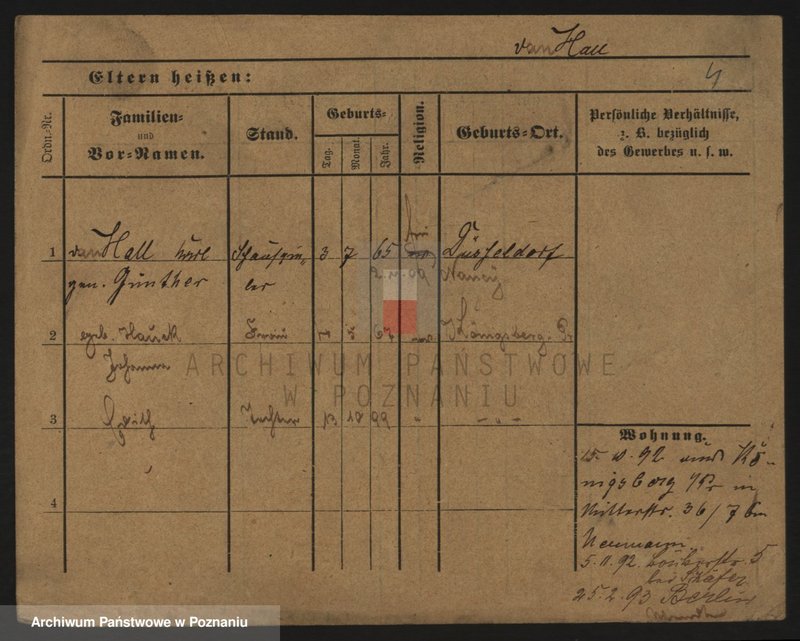 van Hall
4
Eltern heißen:
Ordn.-Nr.
Familien-
und
Vor-Namen.
Stand.
Geburts-
Tag.
Monat.
Jahr.
Religion.
Geburts-Ort.
Persönliche Verhältnisse,
z. B. bezüglich
des Gewerbes u. s. w.
1 van Hall Karl Schauspie- 3 7 65 Düsseldorf
gen. Günther ler Nancy
2 geb. Hauck Frau 5 67 Königsberg. Pr
Johanna
3 Edith Tochter 13 10 99 " - " -
4
Wohnung.
15. 10. 92 aus Kö-
nigsberg i/Pr in
Mitterstr. 36/7 bei
Neumann
5. 11. 92. 5
bei Schäfer
25. 2. 93 Berlin
ARCHIWUM PAŃSTWOWE
W POZNANIU
Archiwum Państwowe w Poznaniu